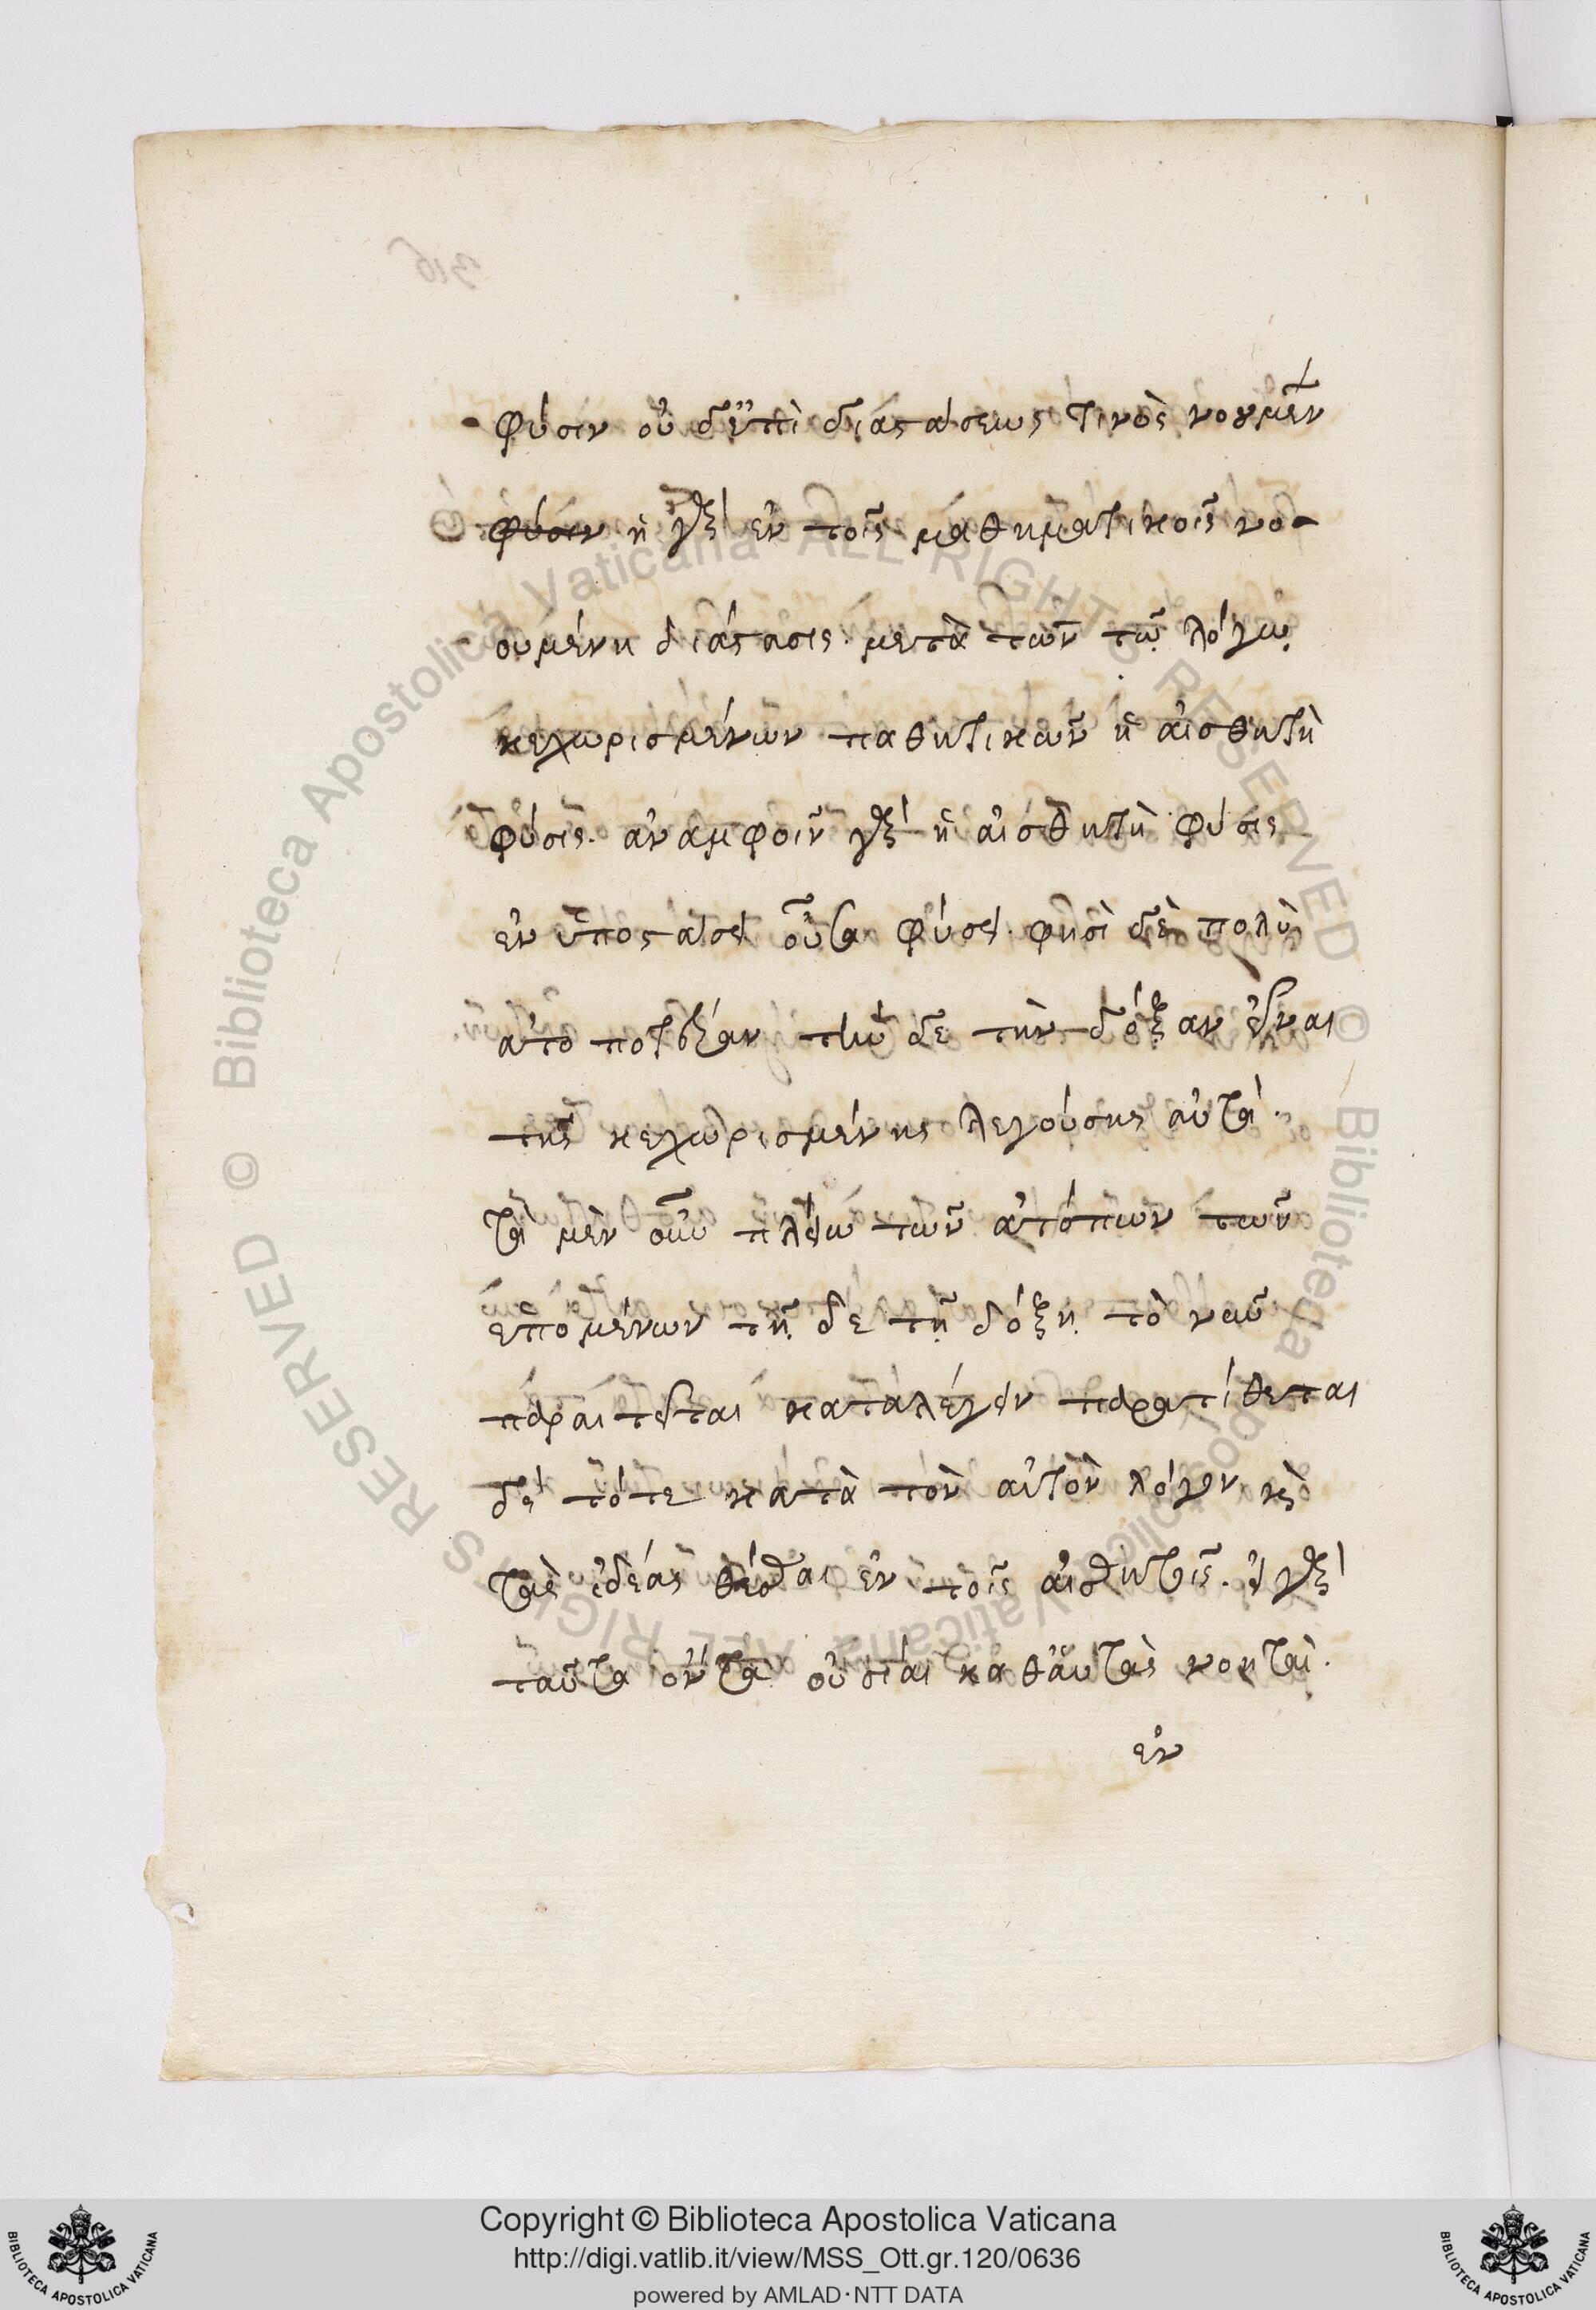 316
φύσιν οὐ δ' ἐπὶ διαστάσεως τινὸς νοουμένην
φύσιν ἡ γὰρ ἐν τοῖς μαθηματικοῖς νο-
ουμένη διάστασις μετὰ τῶν τῷ λόγῳ
κεχωρισμένων παθητικῶν ἡ αἰσθητὴ
φύσις. ἀναμφοῖν γὰρ ἡ αἰσθητὴ φύσις
ἐν ὑποστάσει οὖσα φύσει. φησὶ δὲ πολὺ
τήν δε τὴν δόξαν εἶναι
τῆς κεχωρισμένης λεγούσης αὐτά.
τὰ μὲν οὖν πλείω τῶν ἀτόπων τῶν
ἑπομένων τῇ δε τῇ δόξῃ τὸ νῦν
παραιτεῖται καταλέγειν παρατίθεται
δέ τότε κατὰ τὸν αὐτὸν λόγον καὶ
τὰς ἰδέας θέσθαι ἐν τοῖς αἰσθητοῖς. εἰ γὰρ
ταῦτα ὄντα οὐσίαι καθ' αὑτὰς νοηταὶ.
ἐν
© Biblioteca Apostolica Vaticana ALL RIGHTS RESERVED © Biblioteca Apostolica Vaticana ALL RIGHTS RESERVED
Copyright © Biblioteca Apostolica Vaticana
http://digi.vatlib.it/view/MSS_Ott.gr.120/0636
powered by AMLAD·NTT DATA
BIBLIOTECA APOSTOLICA VATICANA
BIBLIOTECA APOSTOLICA VATICANA